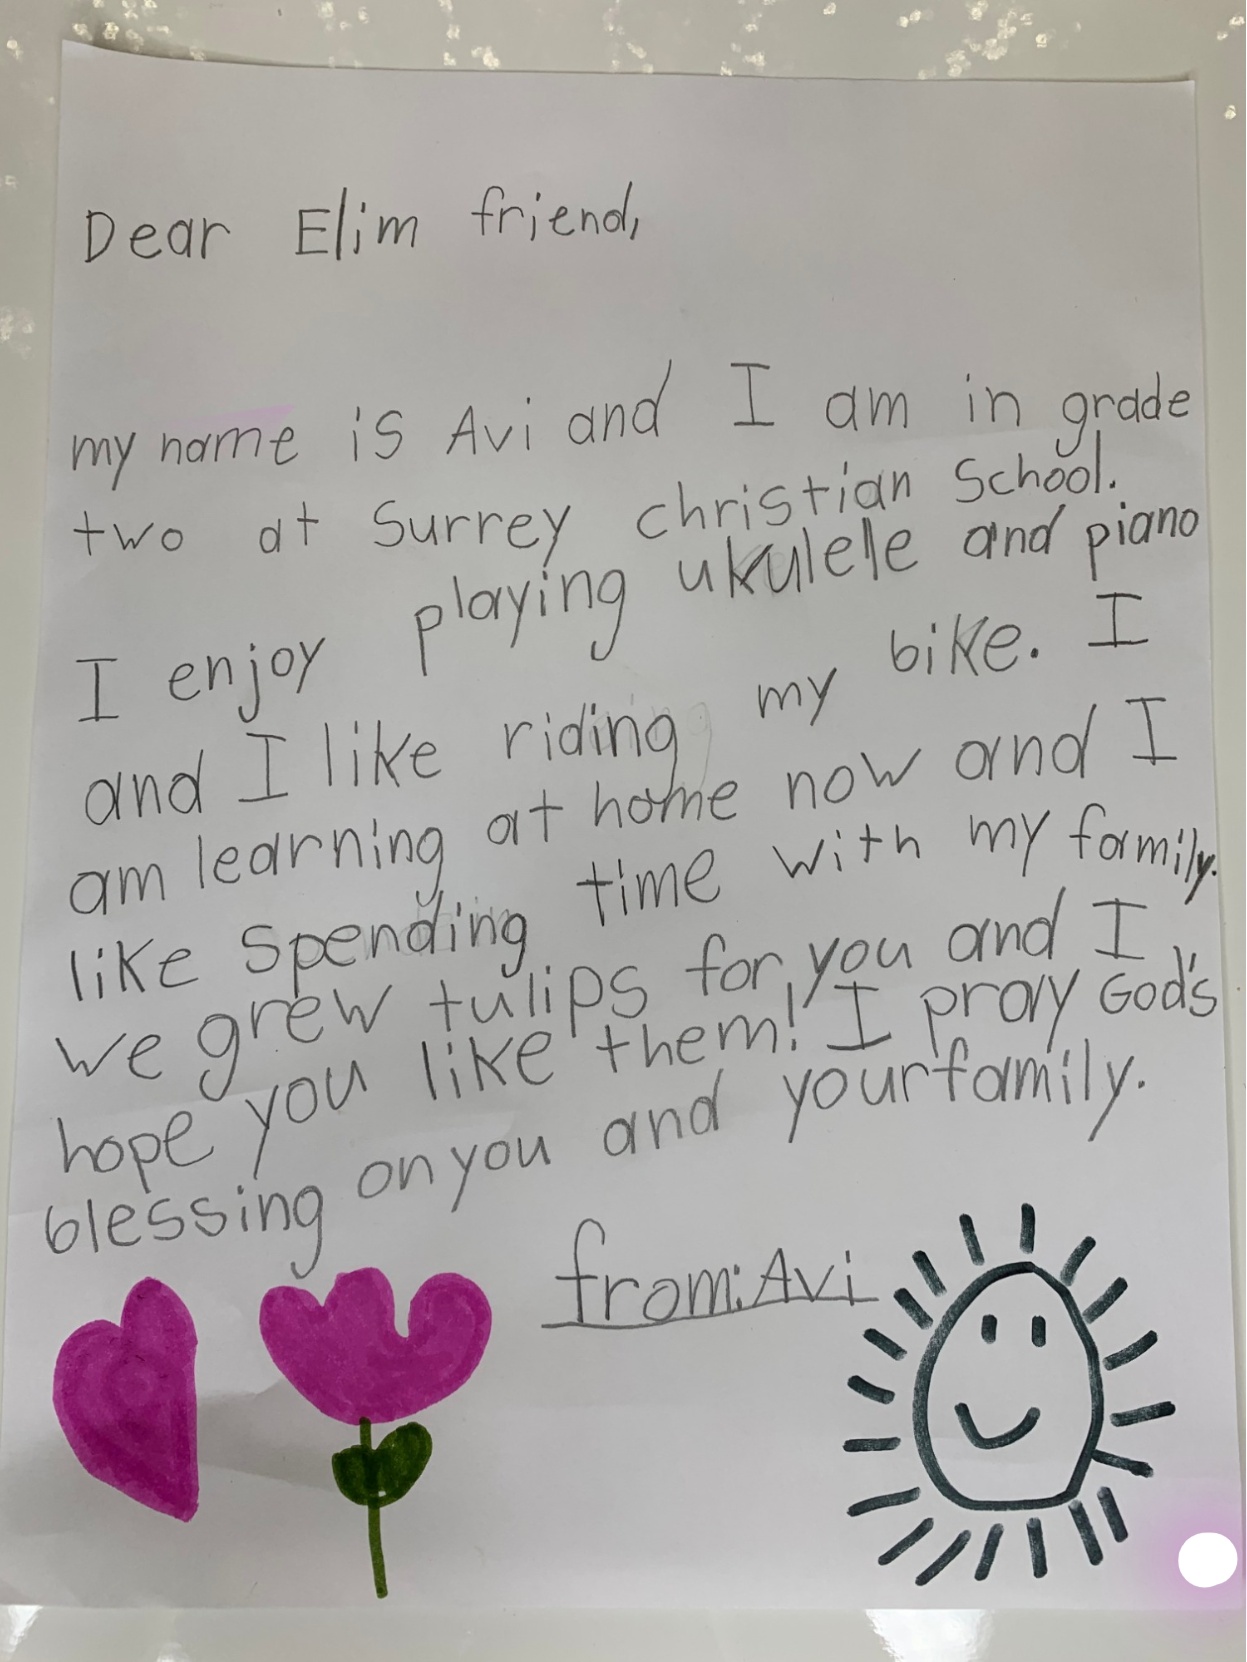 Dear Elim friend,
my name is Avi and I am in grade
two at Surrey christian School.
I enjoy playing ukulele and piano
and I like riding my bike. I
am learning at home now and I
like spending time with my family.
we grew tulips for you and I
hope you like them! I pray God's
blessing on you and your family.
from: Avi